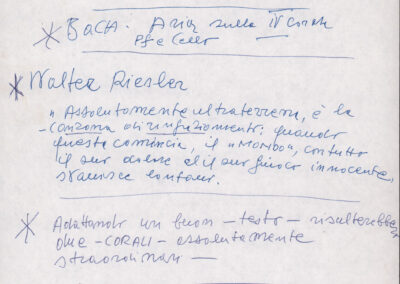 * BACH. Aria sulla IV Corda
Pf e Cello
* Walter Riesler
"Assolutamente ultraterrena, è la
- canzona di ringraziamento; quando
questa comincia, il "MONDO", con tutto
il suo dolore ed il suo gioco innocente,
svanisce lontano.
* Adattando un buon - testo - risulterebbero
due - CORALI - assolutamente
straordinari -